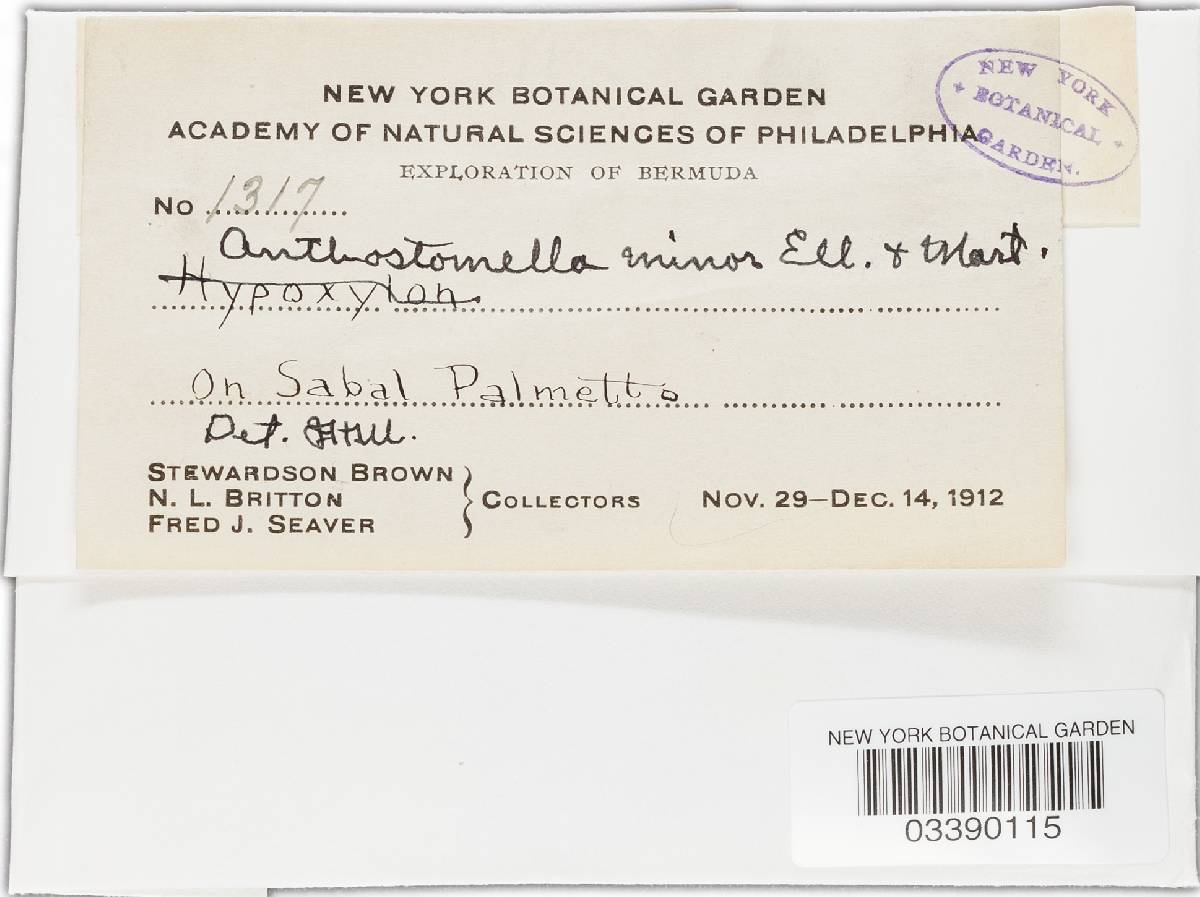 NEW YORK BOTANICAL GARDEN
ACADEMY OF NATURAL SCIENCES OF PHILADELPHIA
EXPLORATION OF BERMUDA
NEW YORK
BOTANICAL
GARDEN.
No 1317
Anthostomella minor Ell. & Mart.
Hypoxylon.
On Sabal Palmetto
Det.
STEWARDSON BROWN
N. L. BRITTON
FRED J. SEAVER
COLLECTORS
NOV. 29–DEC. 14, 1912
NEW YORK BOTANICAL GARDEN
03390115